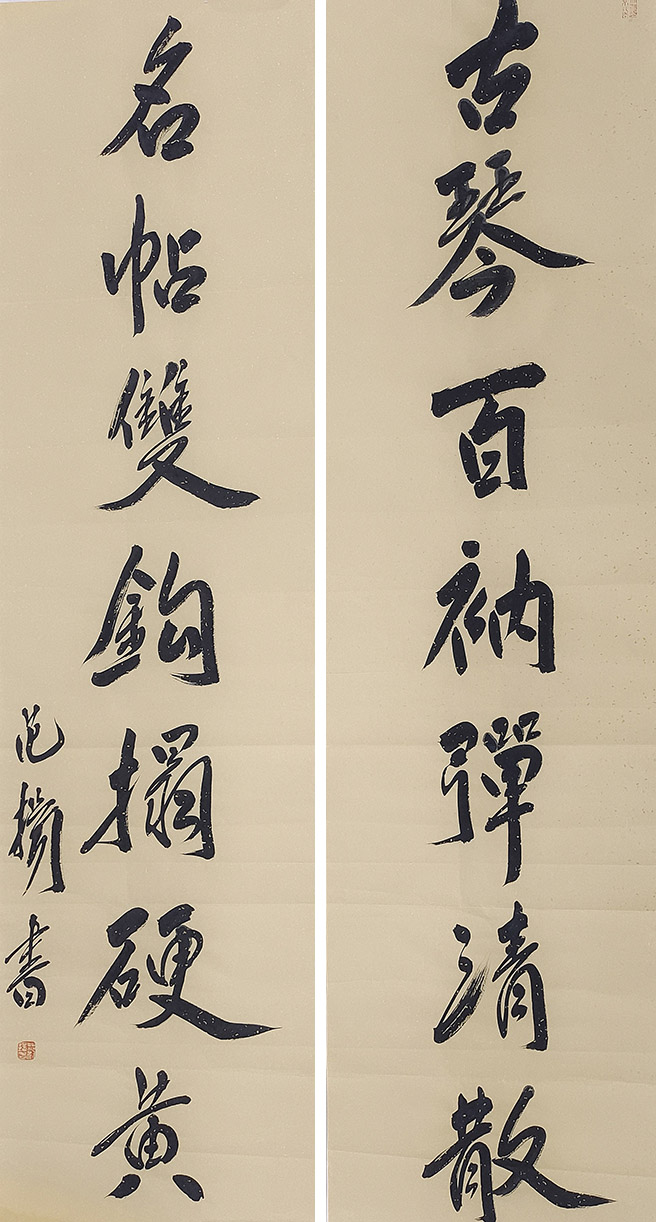 古琴百衲彈清散
名帖雙鉤搨硬黃
范

書